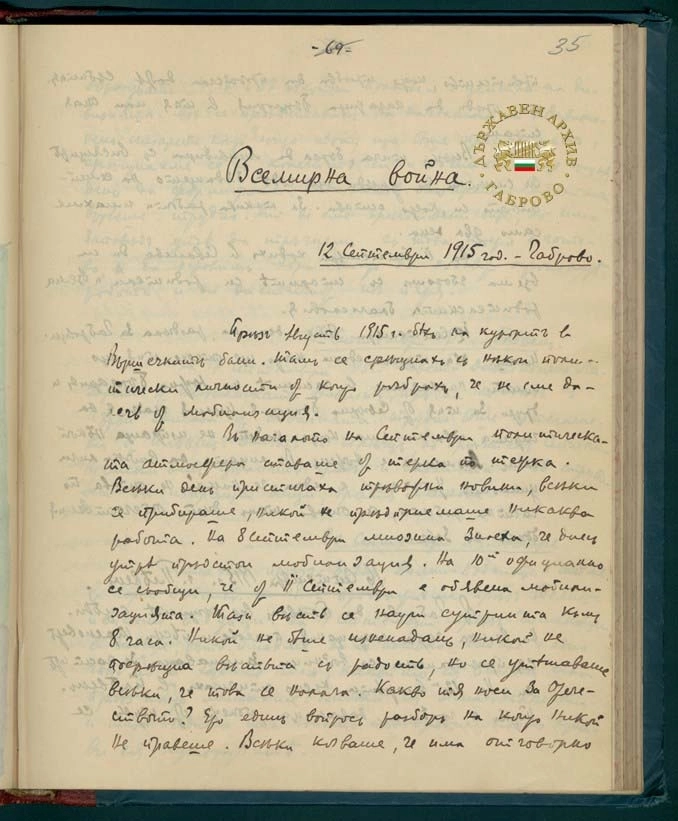 -69-
35
ДЪРЖАВЕН АРХИВ
ГАБРОВО
Всемирна война.
12 Септемврий 1915 год. - Габрово.
Презъ августъ 1915 г. бѣхъ на курортъ в
Вършечкитѣ бани. Тамъ се срещнахъ съ нѣкои поли-
тически личности от които разбрахъ, че не сме да-
лечъ от мобилизация.
Въ началото на Септемврий политическа-
та атмосфера ставаше от тежка по тежка.
Всѣки день пристигаха тревожни новини, всѣки
се прибираше, никой не предприемаше никаква
работа. На 8 Септемврий мнозина знаеха, че днесъ
утрѣ предстои мобилизация. На 10тий официално
се съобщи, че от 11 Септемврий е обявена мобили-
зацията. Тази вѣсть се научи сутринта къмъ
8 часа. Никой не бѣше изненаданъ, никой не
посрещна вѣстьта съ радость, но се утѣшаваше
всѣки, че това се налага. Какво тя носи за Отече-
ството? Ето единъ въпросъ разборъ на който никой
не правеше. Всѣки казваше, че има отговорно